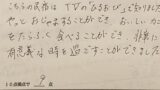 こちらの民宿は TVの「ひるおび」で知りました
やっと おじゃますることができ、おいしいカニ
をたらふく食べることができ、非常に
有意義な時を過ですことができました
10点満点で 9 点